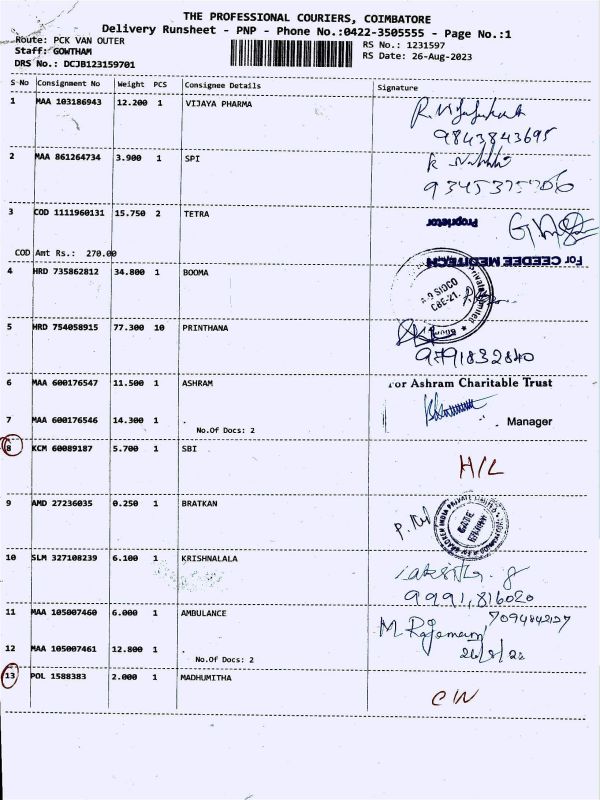 THE PROFESSIONAL COURIERS, COIMBATORE
Delivery Runsheet - PNP - Phone No.:0422-3505555 - Page No.:1
Route: PCK VAN OUTER
Staff: GOWTHAM
DRS No.: DCJB123159701
RS No.: 1231597
RS Date: 26-Aug-2023
S No Consignment No Weight PCS Consignee Details Signature
1 MAA 103186943 12.200 1 VIJAYA PHARMA
9843843695
2 MAA 861264734 3.900 1 SPI
3 COD 1111960131 15.750 2 TETRA
Proprietor
COD Amt Rs.: 270.00
For CEEDEE MEDITECH
4 HRD 735862812 34.800 1 BOOMA
SIDCO
CBE-21.
5 HRD 754058915 77.300 10 PRINTHANA
9791832840
6 MAA 600176547 11.500 1 ASHRAM
For Ashram Charitable Trust
7 MAA 600176546 14.300 1 .
No.Of Docs: 2
Manager
8 KCM 60089187 5.700 1 SBI
H/L
9 AMD 27236035 0.250 1 BRATKAN
10 SLM 327108239 6.100 1 KRISHNALALA
9991,816020
11 MAA 105007460 6.000 1 AMBULANCE
7094842127
M. Rajamani
12 MAA 105007461 12.800 1 .
No.Of Docs: 2
13 POL 1588383 2.000 1 MADHUMITHA
CW